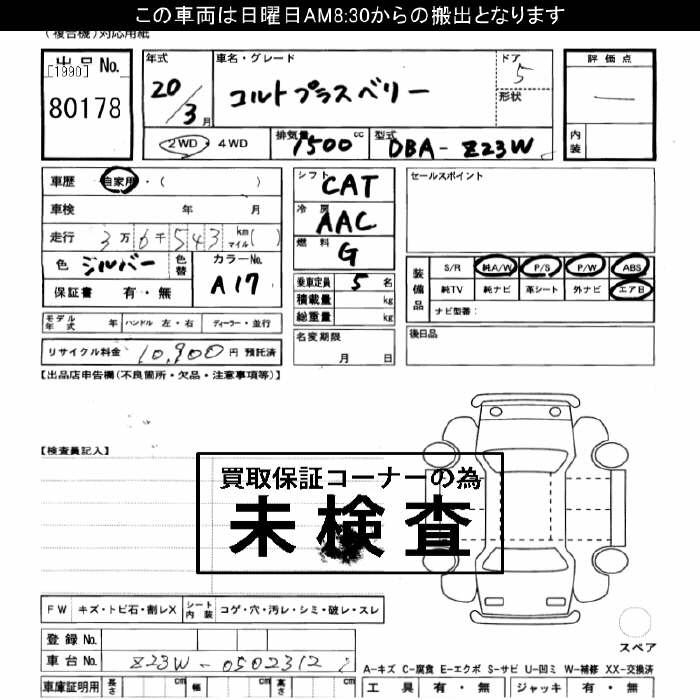 この車両は日曜日AM8:30からの搬出となります
(複合機)対応用紙
出品No.
[1990]
80178
年式
20/3月
車名・グレード
コルトプラスベリー
ドア
5
形状
評価点
—
内装
2WD・4WD
排気量
1500cc
型式
DBA-Z23W
車歴 自家用・( )
車検 年 月
走行 3万6千543 km マイル( )
色 シルバー
色替
カラーNo.
A17
保証書 有・無
シフト
CAT
冷房
AAC
燃料
G
乗車定員 5名
積載量 kg
総重量 kg
セールスポイント
装備品
S/R 純A/W P/S P/W ABS
純TV 純ナビ 革シート 外ナビ エアB
ナビ型番:
モデル年式 年 ハンドル 左・右 ディーラー・並行
名変期限
月 日
後日品
リサイクル料金 10,900円 預託済
【出品店申告欄(不良箇所・欠品・注意事項等)】
【検査員記入】
買取保証コーナーの為
未検査
FW キズ・トビ石・割レX
シート内装 コゲ・穴・汚レ・シミ・破レ・スレ
登録No.
車台No. Z23W-0502312
スペア
A-キズ C-腐食 E-エクボ S-サビ U-凹ミ W-補修 XX-交換済
車庫証明用 長さ cm 幅 cm 高さ cm
工具 有・無 ジャッキ 有・無